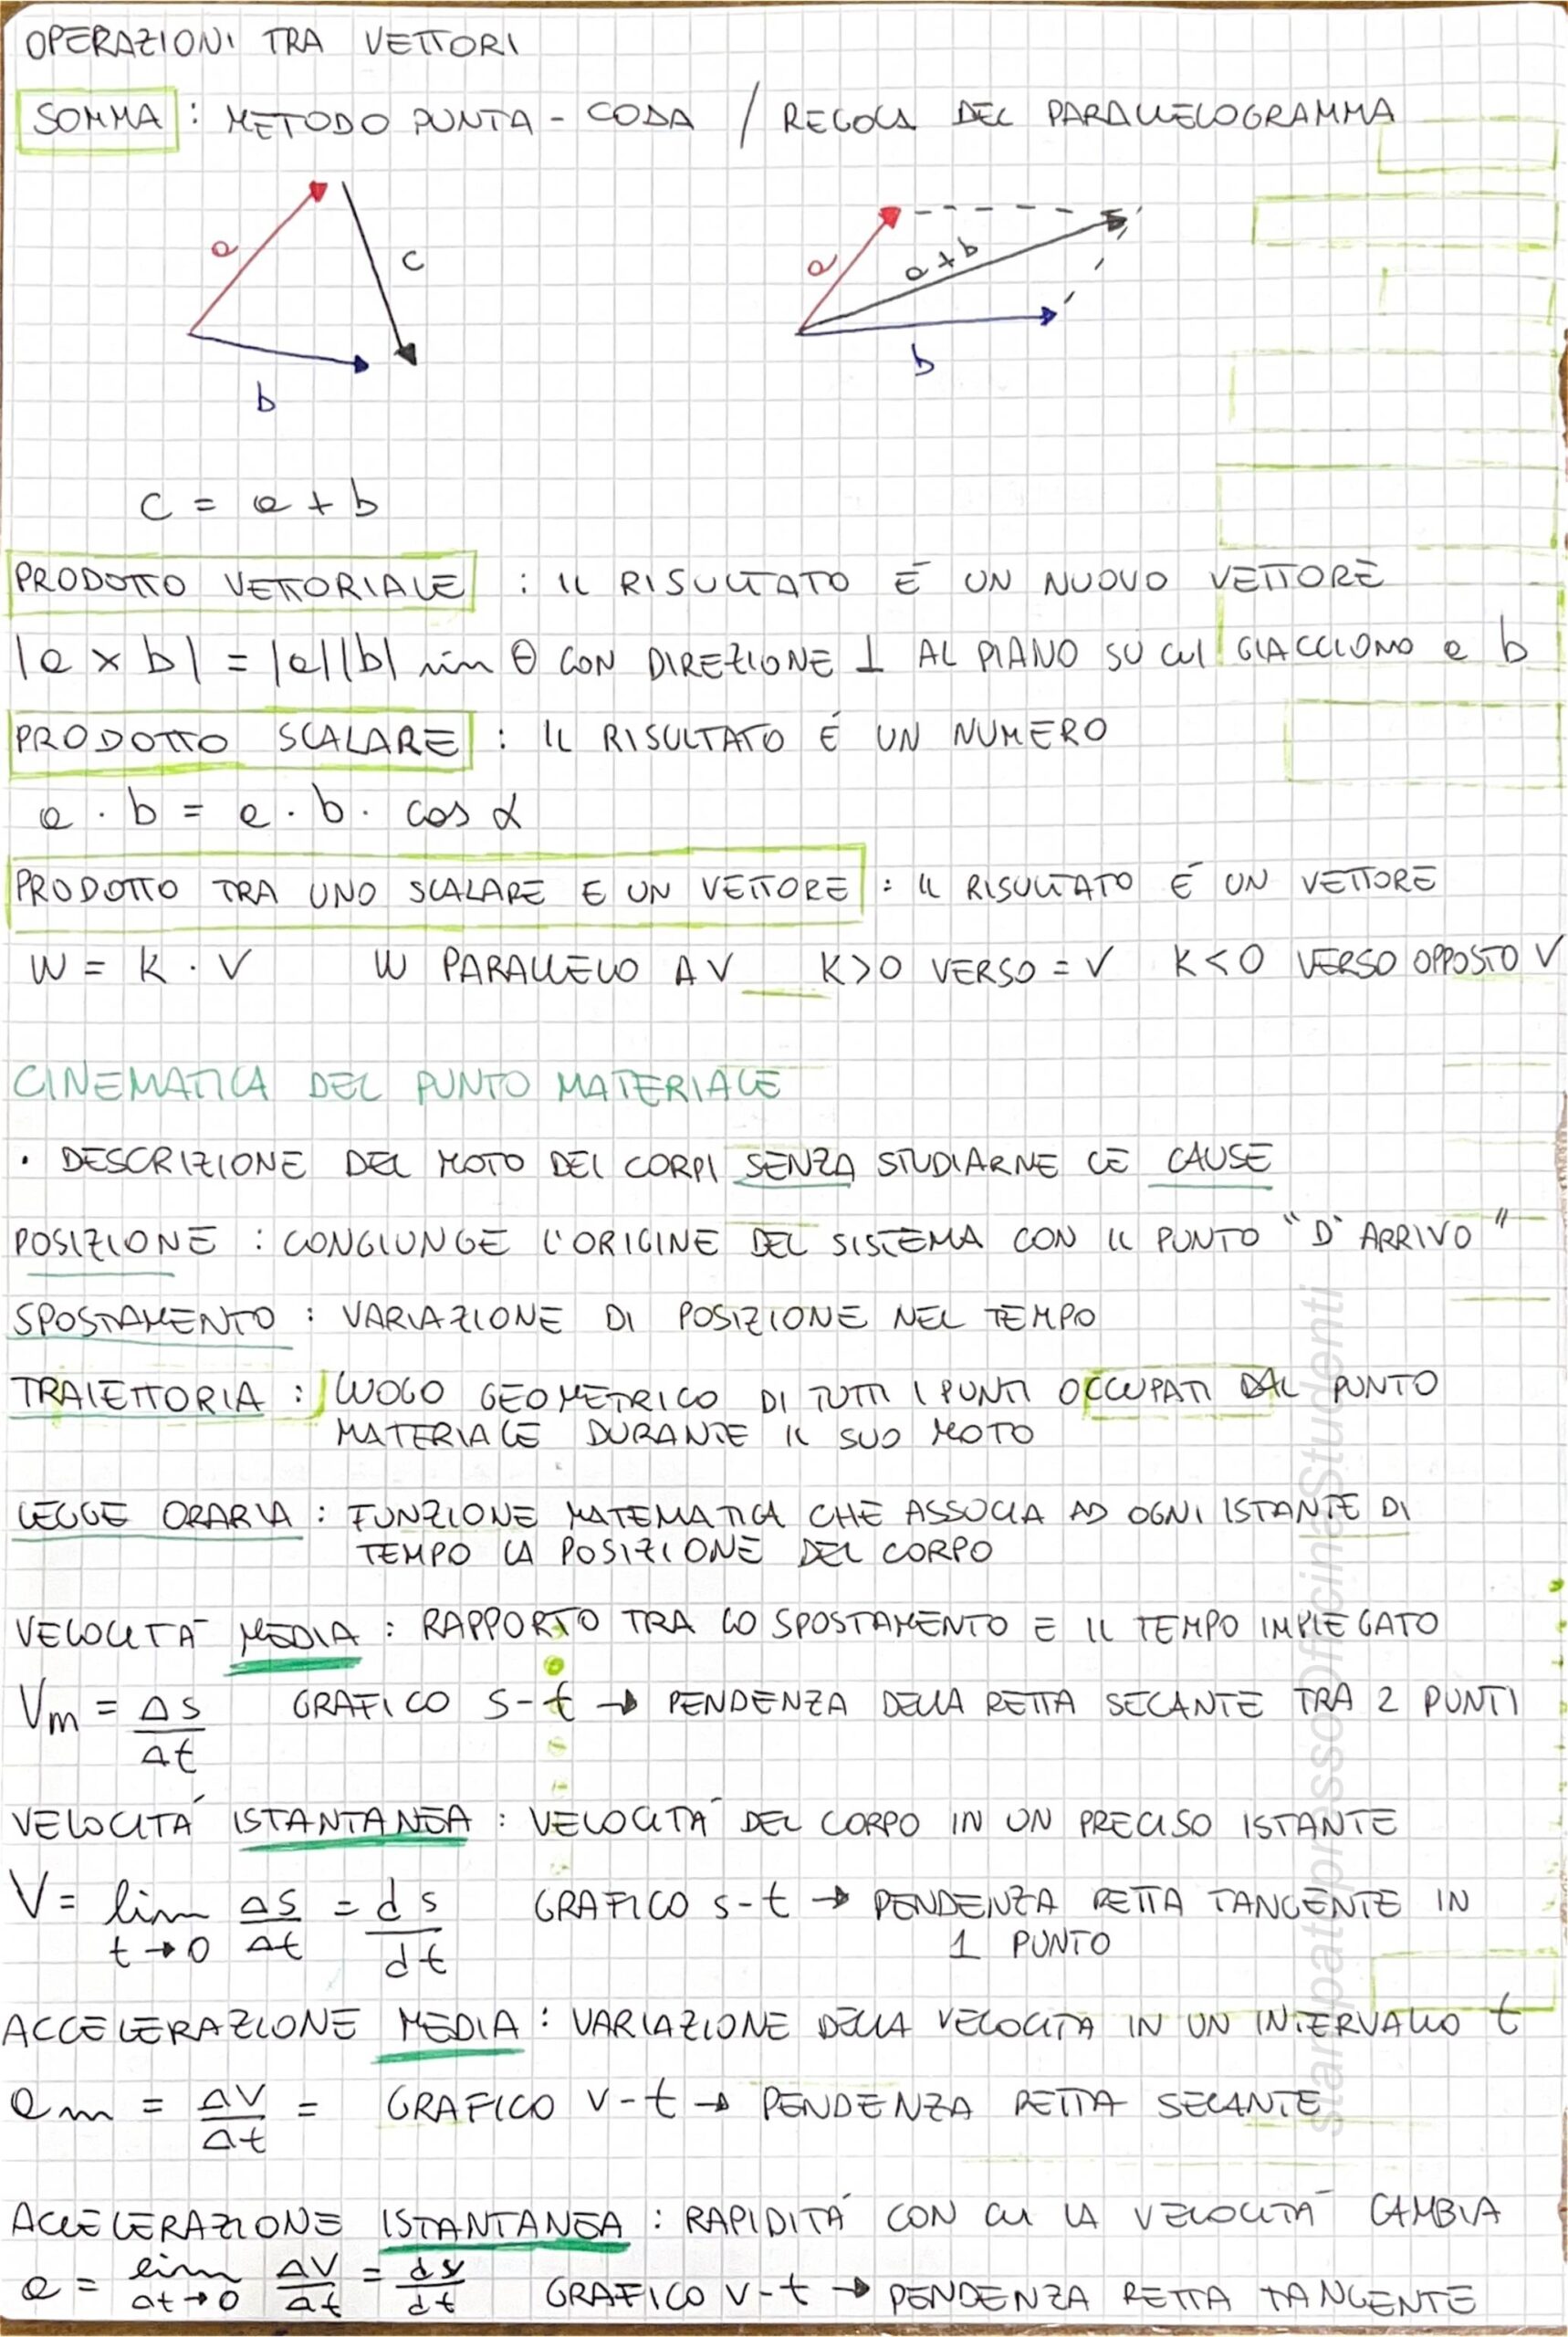 OPERAZIONI TRA VETTORI
SOMMA : METODO PUNTA - CODA / REGOLA DEL PARALLELOGRAMMA
a
c
b
a
a + b
b
c = a + b
PRODOTTO VETTORIALE : IL RISULTATO É UN NUOVO VETTORE
|a x b| = |a||b| sin θ CON DIREZIONE ⊥ AL PIANO SU CUI GIACCIONO a b
PRODOTTO SCALARE : IL RISULTATO É UN NUMERO
a · b = a · b · cos α
PRODOTTO TRA UNO SCALARE E UN VETTORE : IL RISULTATO É UN VETTORE
W = K · V W PARALLELO A V K>0 VERSO = V K<0 VERSO OPPOSTO V
CINEMATICA DEL PUNTO MATERIALE
• DESCRIZIONE DEL MOTO DEI CORPI SENZA STUDIARNE LE CAUSE
POSIZIONE : CONGIUNGE L'ORIGINE DEL SISTEMA CON IL PUNTO "D'ARRIVO"
SPOSTAMENTO : VARIAZIONE DI POSIZIONE NEL TEMPO
TRAIETTORIA : LUOGO GEOMETRICO DI TUTTI I PUNTI OCCUPATI DAL PUNTO
MATERIALE DURANTE IL SUO MOTO
LEGGE ORARIA : FUNZIONE MATEMATICA CHE ASSOCIA AD OGNI ISTANTE DI
TEMPO LA POSIZIONE DEL CORPO
VELOCITÁ MEDIA : RAPPORTO TRA LO SPOSTAMENTO E IL TEMPO IMPIEGATO
Vm = Δs/Δt GRAFICO S-t → PENDENZA DELLA RETTA SECANTE TRA 2 PUNTI
VELOCITÁ ISTANTANEA : VELOCITÁ DEL CORPO IN UN PRECISO ISTANTE
V = lim t→0 Δs/Δt = ds/dt GRAFICO s-t → PENDENZA RETTA TANGENTE IN
1 PUNTO
ACCELERAZIONE MEDIA : VARIAZIONE DELLA VELOCITÁ IN UN INTERVALLO t
am = ΔV/Δt = GRAFICO V-t → PENDENZA RETTA SECANTE
ACCELERAZIONE ISTANTANEA : RAPIDITÁ CON CUI LA VELOCITÁ CAMBIA
a = lim Δt→0 ΔV/Δt = dv/dt GRAFICO V-t → PENDENZA RETTA TANGENTE
stampatopressoOfficinaStudenti